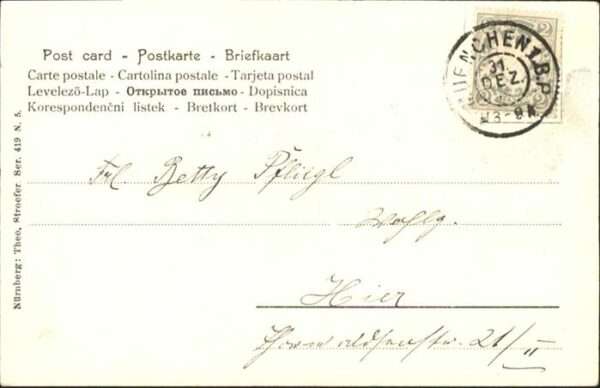 Post card - Postkarte - Briefkaart
Carte postale - Cartolina postale - Tarjeta postal
Levelező-Lap - Открытое письмо - Dopisnica
Korespondenční listek - Bretkort - Brevkort
MUENCHEN 1.B.P.
31.
DEZ.
2
Frl. Betty Pflügl
Wohlg.
Hier
Thorwaldsenstr. 21/II
Nürnberg: Theo. Stroefer. Ser. 419 N. 5.